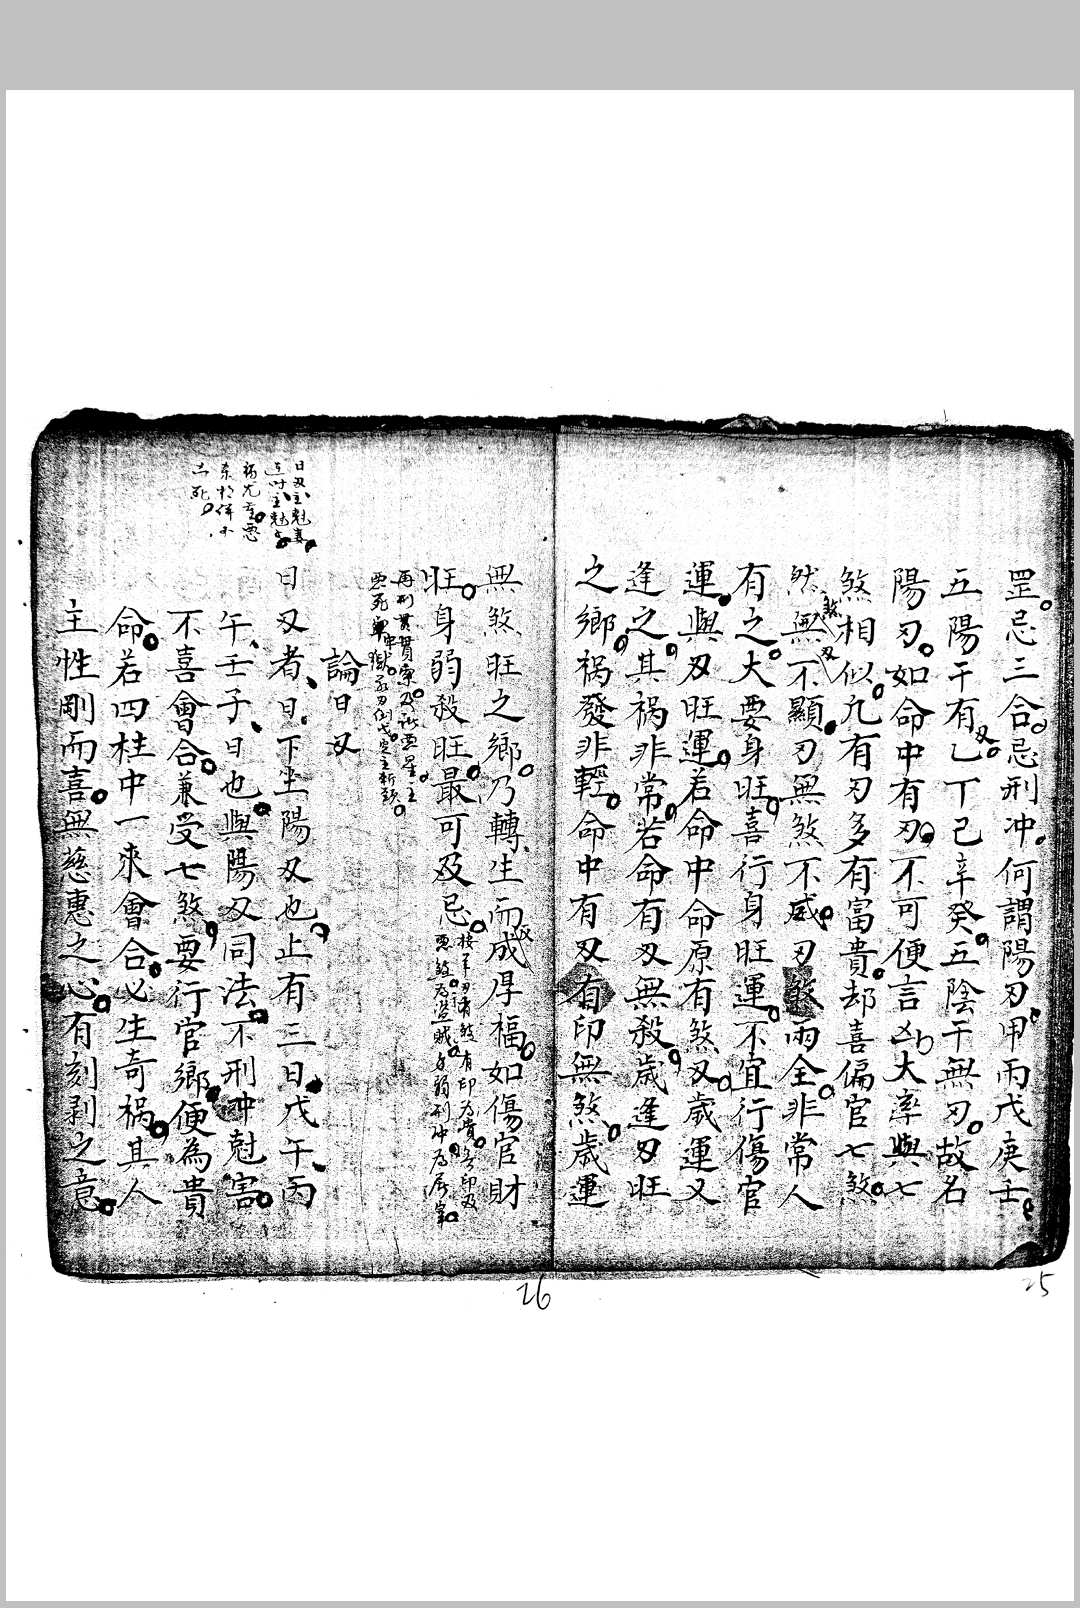 罡忌三合忌刑冲何謂陽刃甲丙戊庚壬
五陽干有刃乙丁己辛癸五陰干無刃故名
陽刃如命中有刃不可便言凶大率與七
煞相似凢有刃多有富貴却喜偏官七煞
然無煞刃不顯刃無煞不威刃煞兩全非常人
有之大要身旺喜行身旺運不宜行傷官
運與刃旺運若命中命原有煞刃歲運又
逢之其禍非常若命有刃無殺歲逢刃旺
之鄉禍發非輕命中有刃有印無煞歲運
25
無煞旺之鄉乃轉生而成厚福如傷官財
旺身弱殺旺最可及忌
論日刃
日刃者日下坐陽刃也止有三日戊午丙
午壬子日也與陽刃同法不刑冲尅害
不喜會合兼受七煞要行官鄉便為貴
命若四柱中一來會合必生奇禍其人
主性剛而喜無慈惠之心有刻剥之意
26